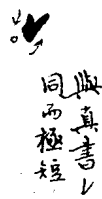 與真書
同而極短